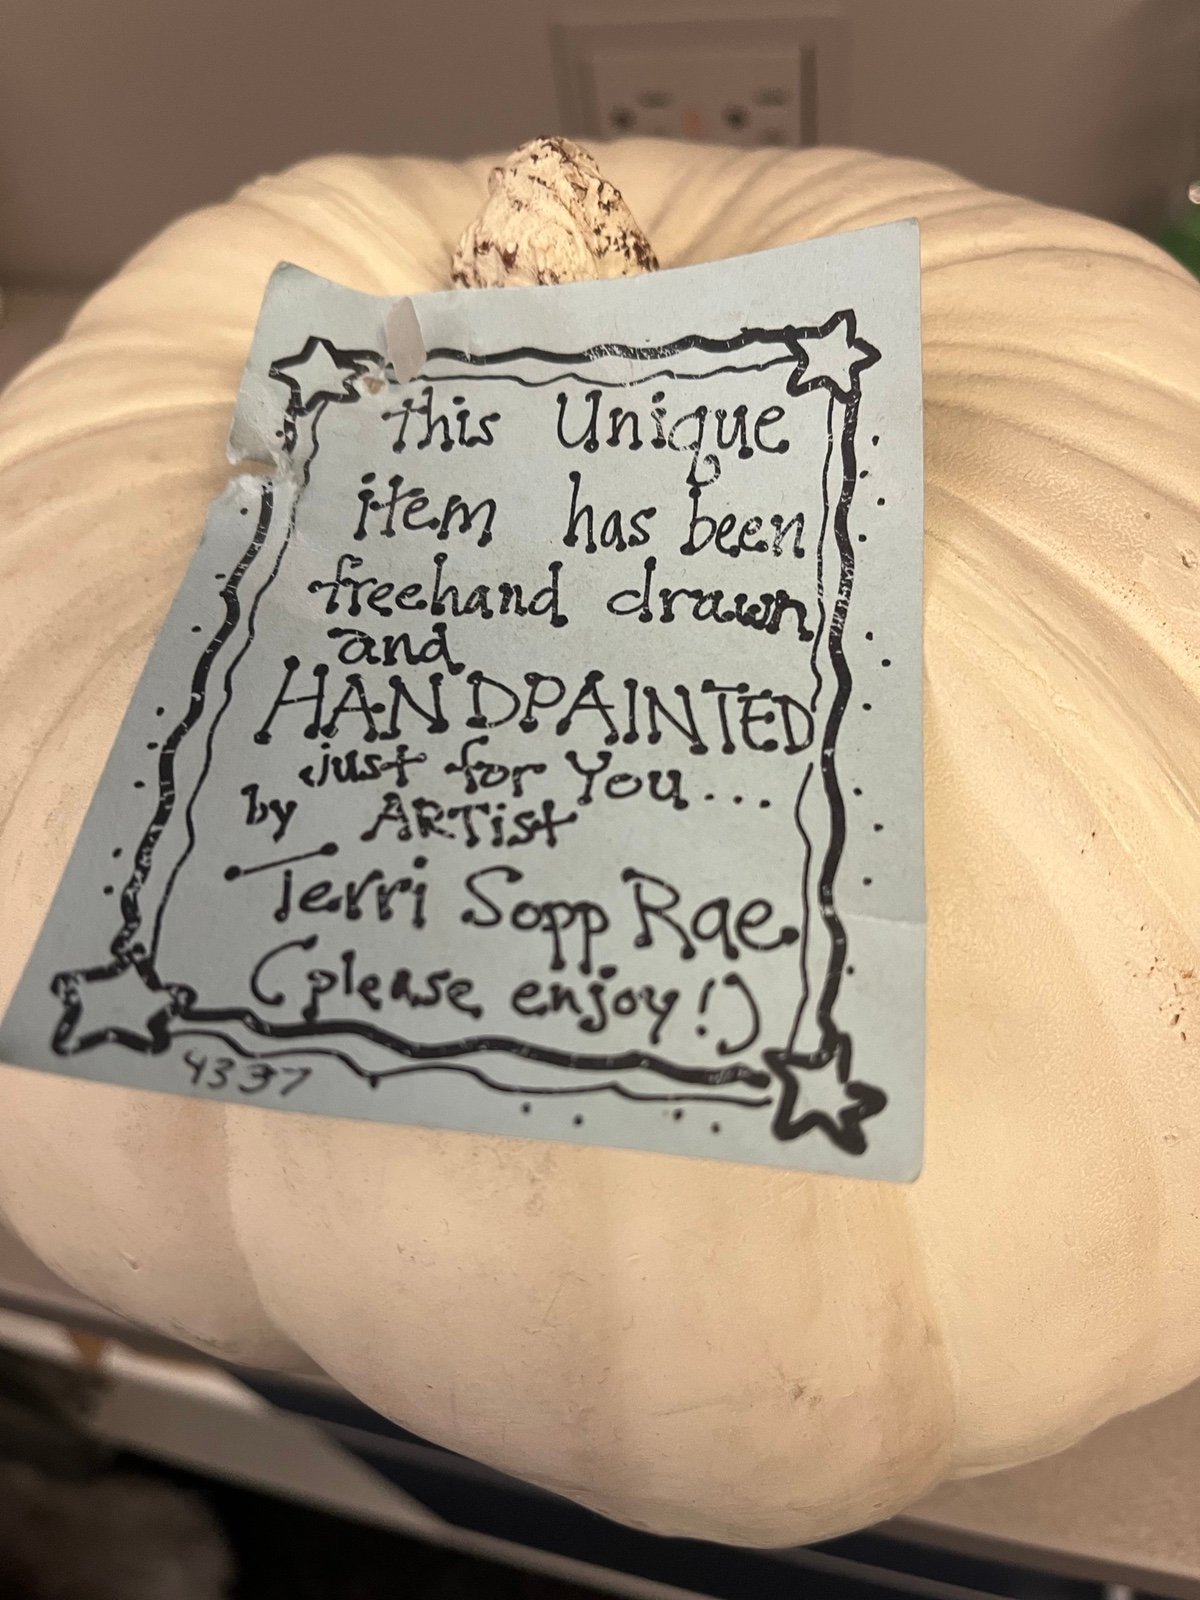 this Unique
item has been
freehand drawn
and
HANDPAINTED
just for You...
by ARTist
Terri Sopp Rae
(please enjoy!)
4337